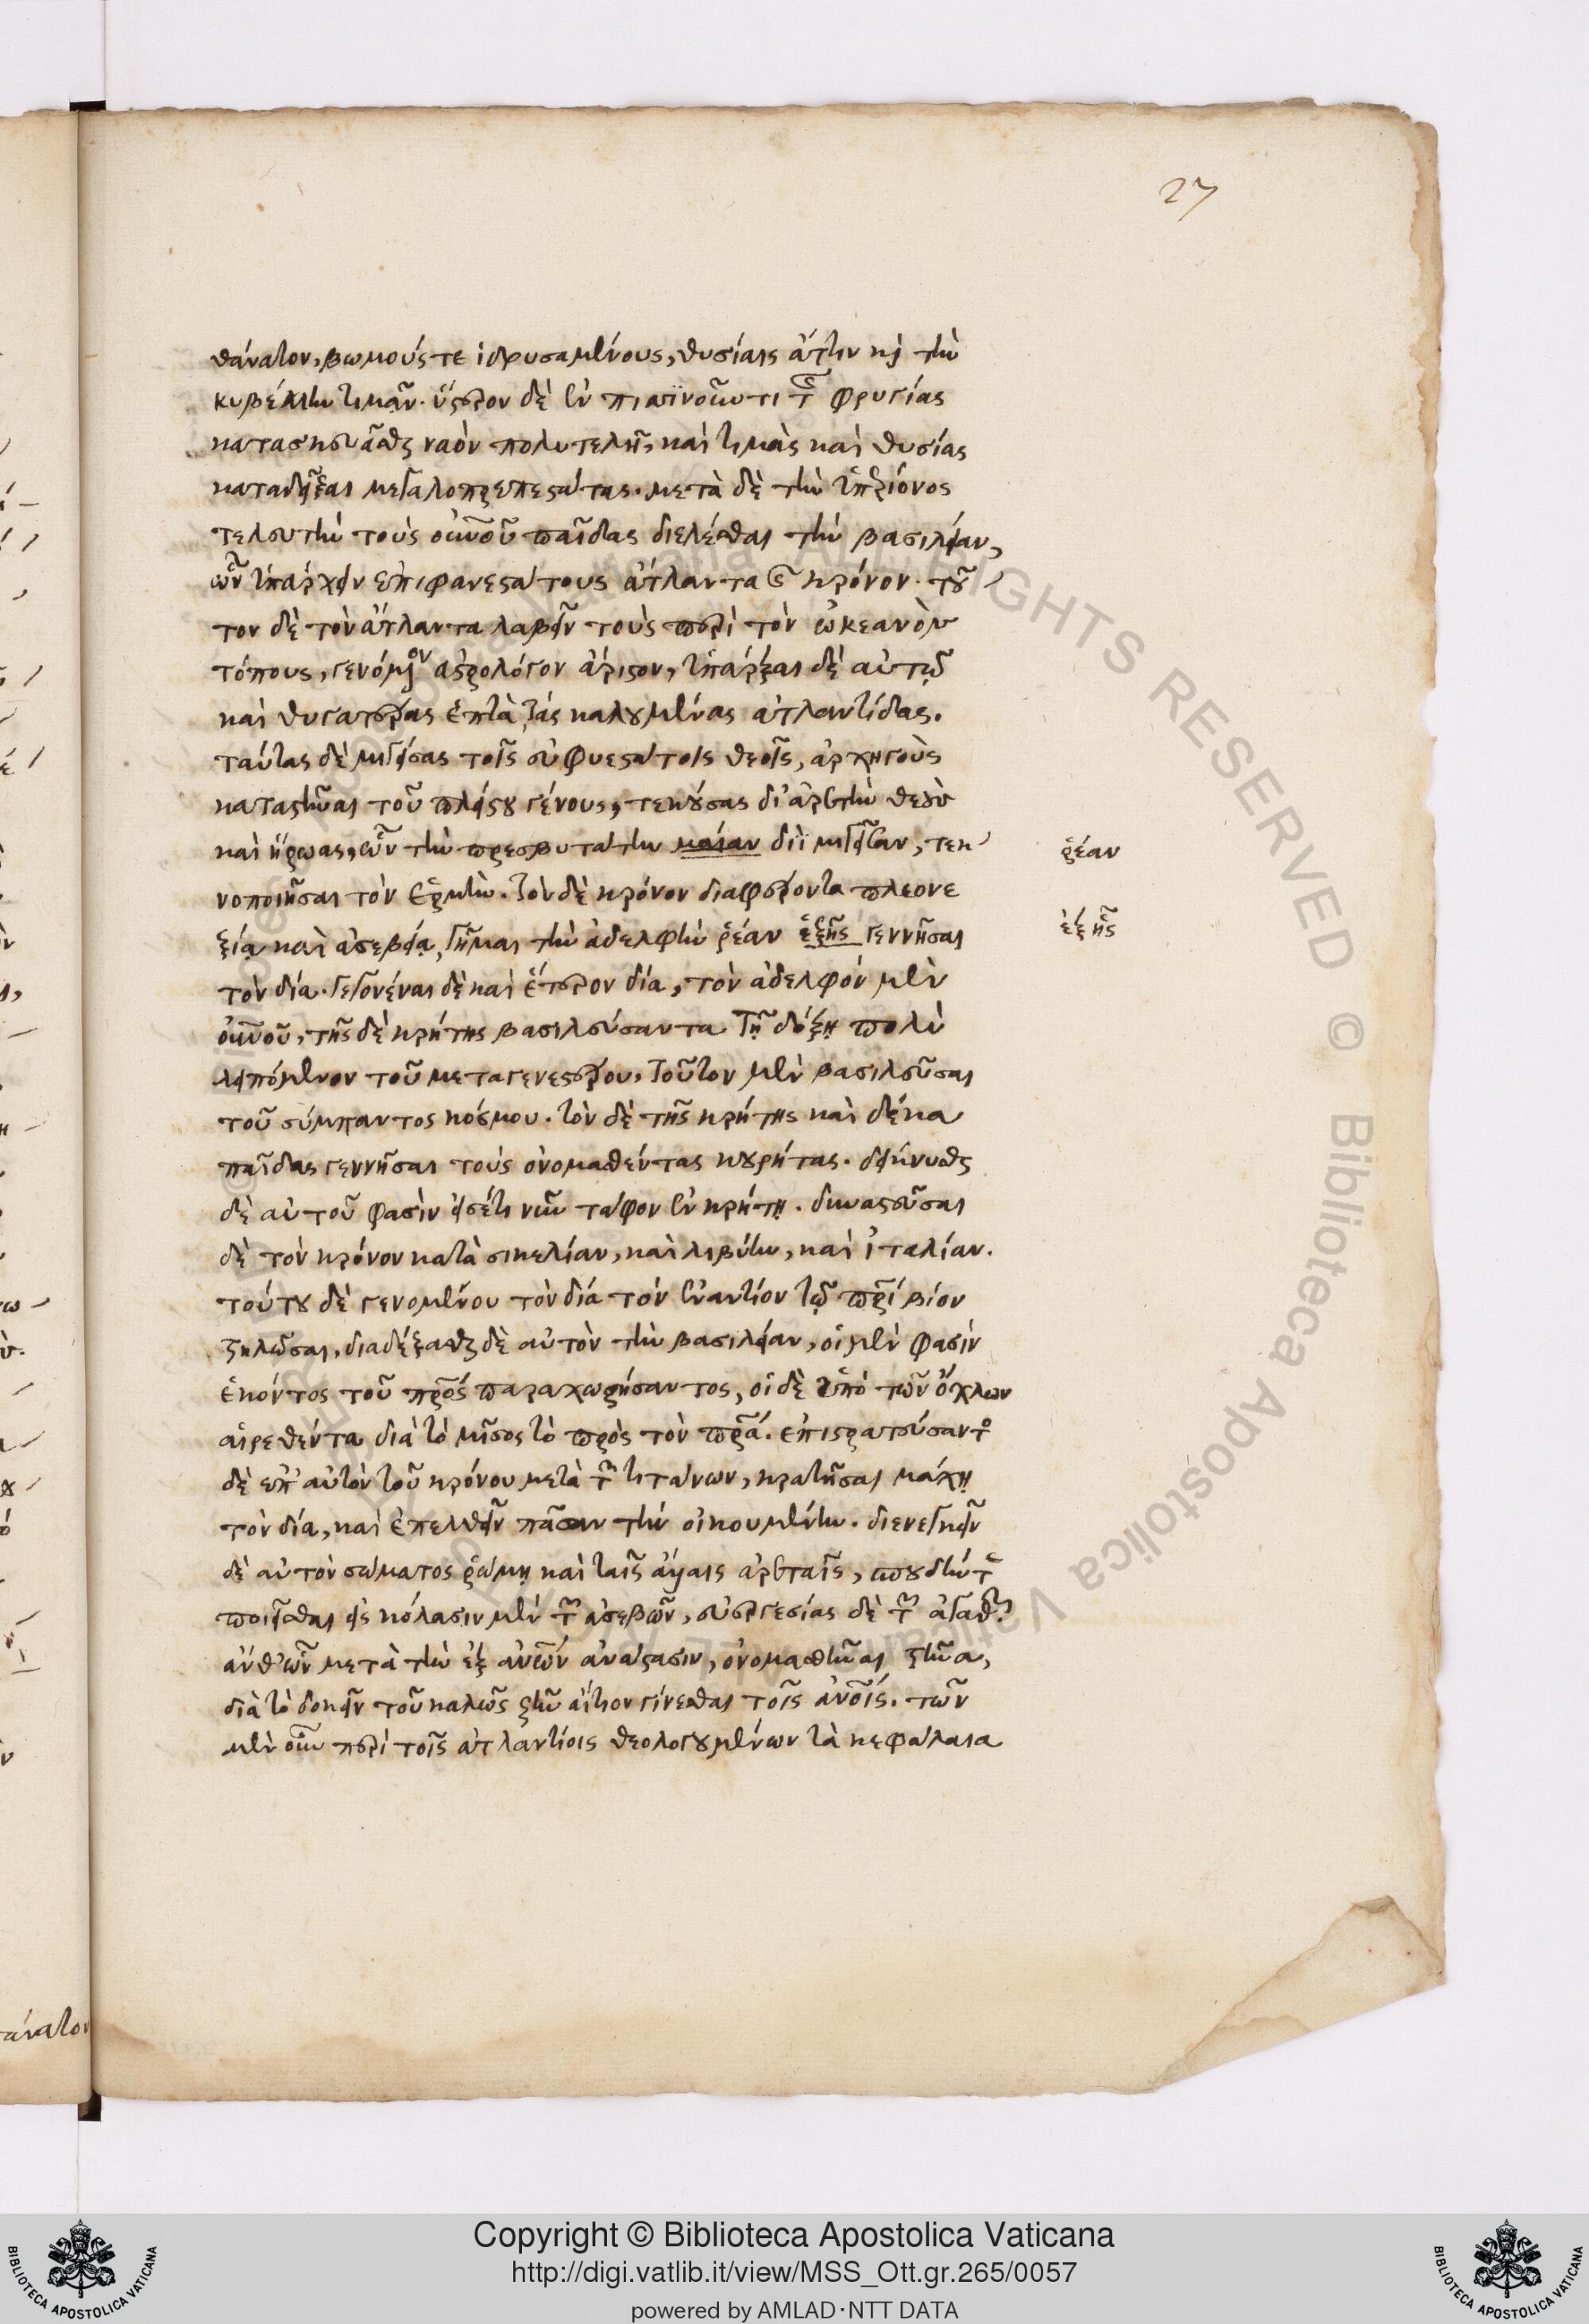 27
θάνατον, βωμούς τε ἱδρυσαμένους, θυσίαις ἄττιν καὶ τὴν
κυβέλην τιμᾶν. ὕστερον δὲ ἐν πισϊνοῦντι τῆς φρυγίας
κατασκευᾶσθαι ναὸν πολυτελῆ, καὶ τιμὰς καὶ θυσίας
καταδεῖξαι μεγαλοπρεπεστάτας. μετὰ δὲ τὴν ὑπερίονος
τελευτὴν τοὺς οὐνοῦ παῖδας διελέσθαι τὴν βασιλείαν,
ὧν ὑπάρχειν ἐπιφανεστάτους ἄτλαντα καὶ κρόνον. τοῦ
τον δὲ τὸν ἄτλαντα λαβεῖν τοὺς περὶ τὸν ὠκεανὸν
τόπους, γενόμενον ἀστρολόγον ἄριστον, ὑπάρξαι δὲ αὐτῷ
καὶ θυγατέρας ἑπτὰ τάς καλουμένας ἀτλαντίδας.
ταύτας δὲ μιγείσας τοῖς εὐφυεστάτοις θεοῖς, ἀρχηγοὺς
καταστῆναι τοῦ πλείστου γένους, τεκούσας δι' ἀρετὴν θεοὺς
καὶ ἥρωας, ὧν τὴν πρεσβυτάτην μαίαν διῒ μιγεῖσαν, τεκ
νοποιῆσαι τὸν ἑρμῆν. τὸν δὲ κρόνον διαφέροντα πλεονε
ξίᾳ καὶ ἀσεβείᾳ, γῆμαι τὴν ἀδελφὴν ῥέαν ἐξῆς γεννῆσαι
τὸν δία. γεγονέναι δὲ καὶ ἕτερον δία, τὸν ἀδελφόν μὲν
οὐνοῦ, τῆς δὲ κρήτης βασιλεύσαντα τῇ δόξῃ πολὺ
λειπόμενον τοῦ μεταγενεστέρου, τοῦτον μὲν βασιλεῦσαι
τοῦ σύμπαντος κόσμου. τὸν δὲ τῆς κρήτης καὶ δέκα
παῖδας γεννῆσαι τοὺς ὀνομασθέντας κουρήτας. δείκνυσθαι
δὲ αὐτοῦ φασὶν εἰσέτι νῦν τάφον ἐν κρήτῃ. δυναστεῦσαι
δὲ τὸν κρόνον κατὰ σικελίαν, καὶ λιβύην, καὶ ἰταλίαν.
τούτου δὲ γενομένου τὸν δία τὸν ἐναντίον τῷ πρὶ βίον
ζηλῶσαι, διαδέξασθαι δὲ αὐτὸν τὴν βασιλείαν, οἱ μὲν φασὶν
ἑκόντος τοῦ πρὸς παραχωρήσαντος, οἱ δὲ ὑπὸ τῶν ὄχλων
αἱρεθέντα διὰ τὸ μῖσος τὸ πρὸς τὸν πρα. ἐπιστρατεύσαντος
δὲ ἐπ' αὐτὸν τοῦ κρόνου μετὰ τῶν τιτάνων, κρατῆσαι μάχῃ
τὸν δία, καὶ ἐπελθεῖν πᾶσαν τὴν οἰκουμένην. διενεγκεῖν
δὲ αὐτὸν σώματος ῥώμῃ καὶ ταῖς ἄλλαις ἀρεταῖς, σπουδήν τε
ποιεῖσθαι εἰς κόλασιν μὲν τῶν ἀσεβῶν, εὐεργεσίας δὲ τῶν ἀγαθῶν.
ἀνθ' ὧν μετὰ τὴν ἐξ ἀνῶν ἀνάστασιν, ὀνομασθῆναι ζῆνα,
διὰ τὸ δοκεῖν τοῦ καλῶς ζῆν αἴτιον γίνεσθαι τοῖς ἀνοῖς. τῶν
μὲν οὖν περὶ τοῖς ἀτλαντίοις θεολογουμένων τὰ κεφάλαια
ῥέαν
ἐξῆς
Copyright © Biblioteca Apostolica Vaticana
http://digi.vatlib.it/view/MSS_Ott.gr.265/0057
powered by AMLAD·NTT DATA